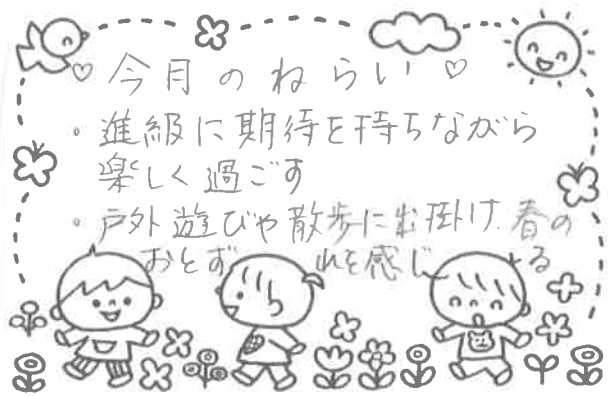 ♡今月のねらい♡
・進級に期待を持ちながら
楽しく過ごす
・戸外遊びや散歩に出掛け、春の
おとずれを感じる